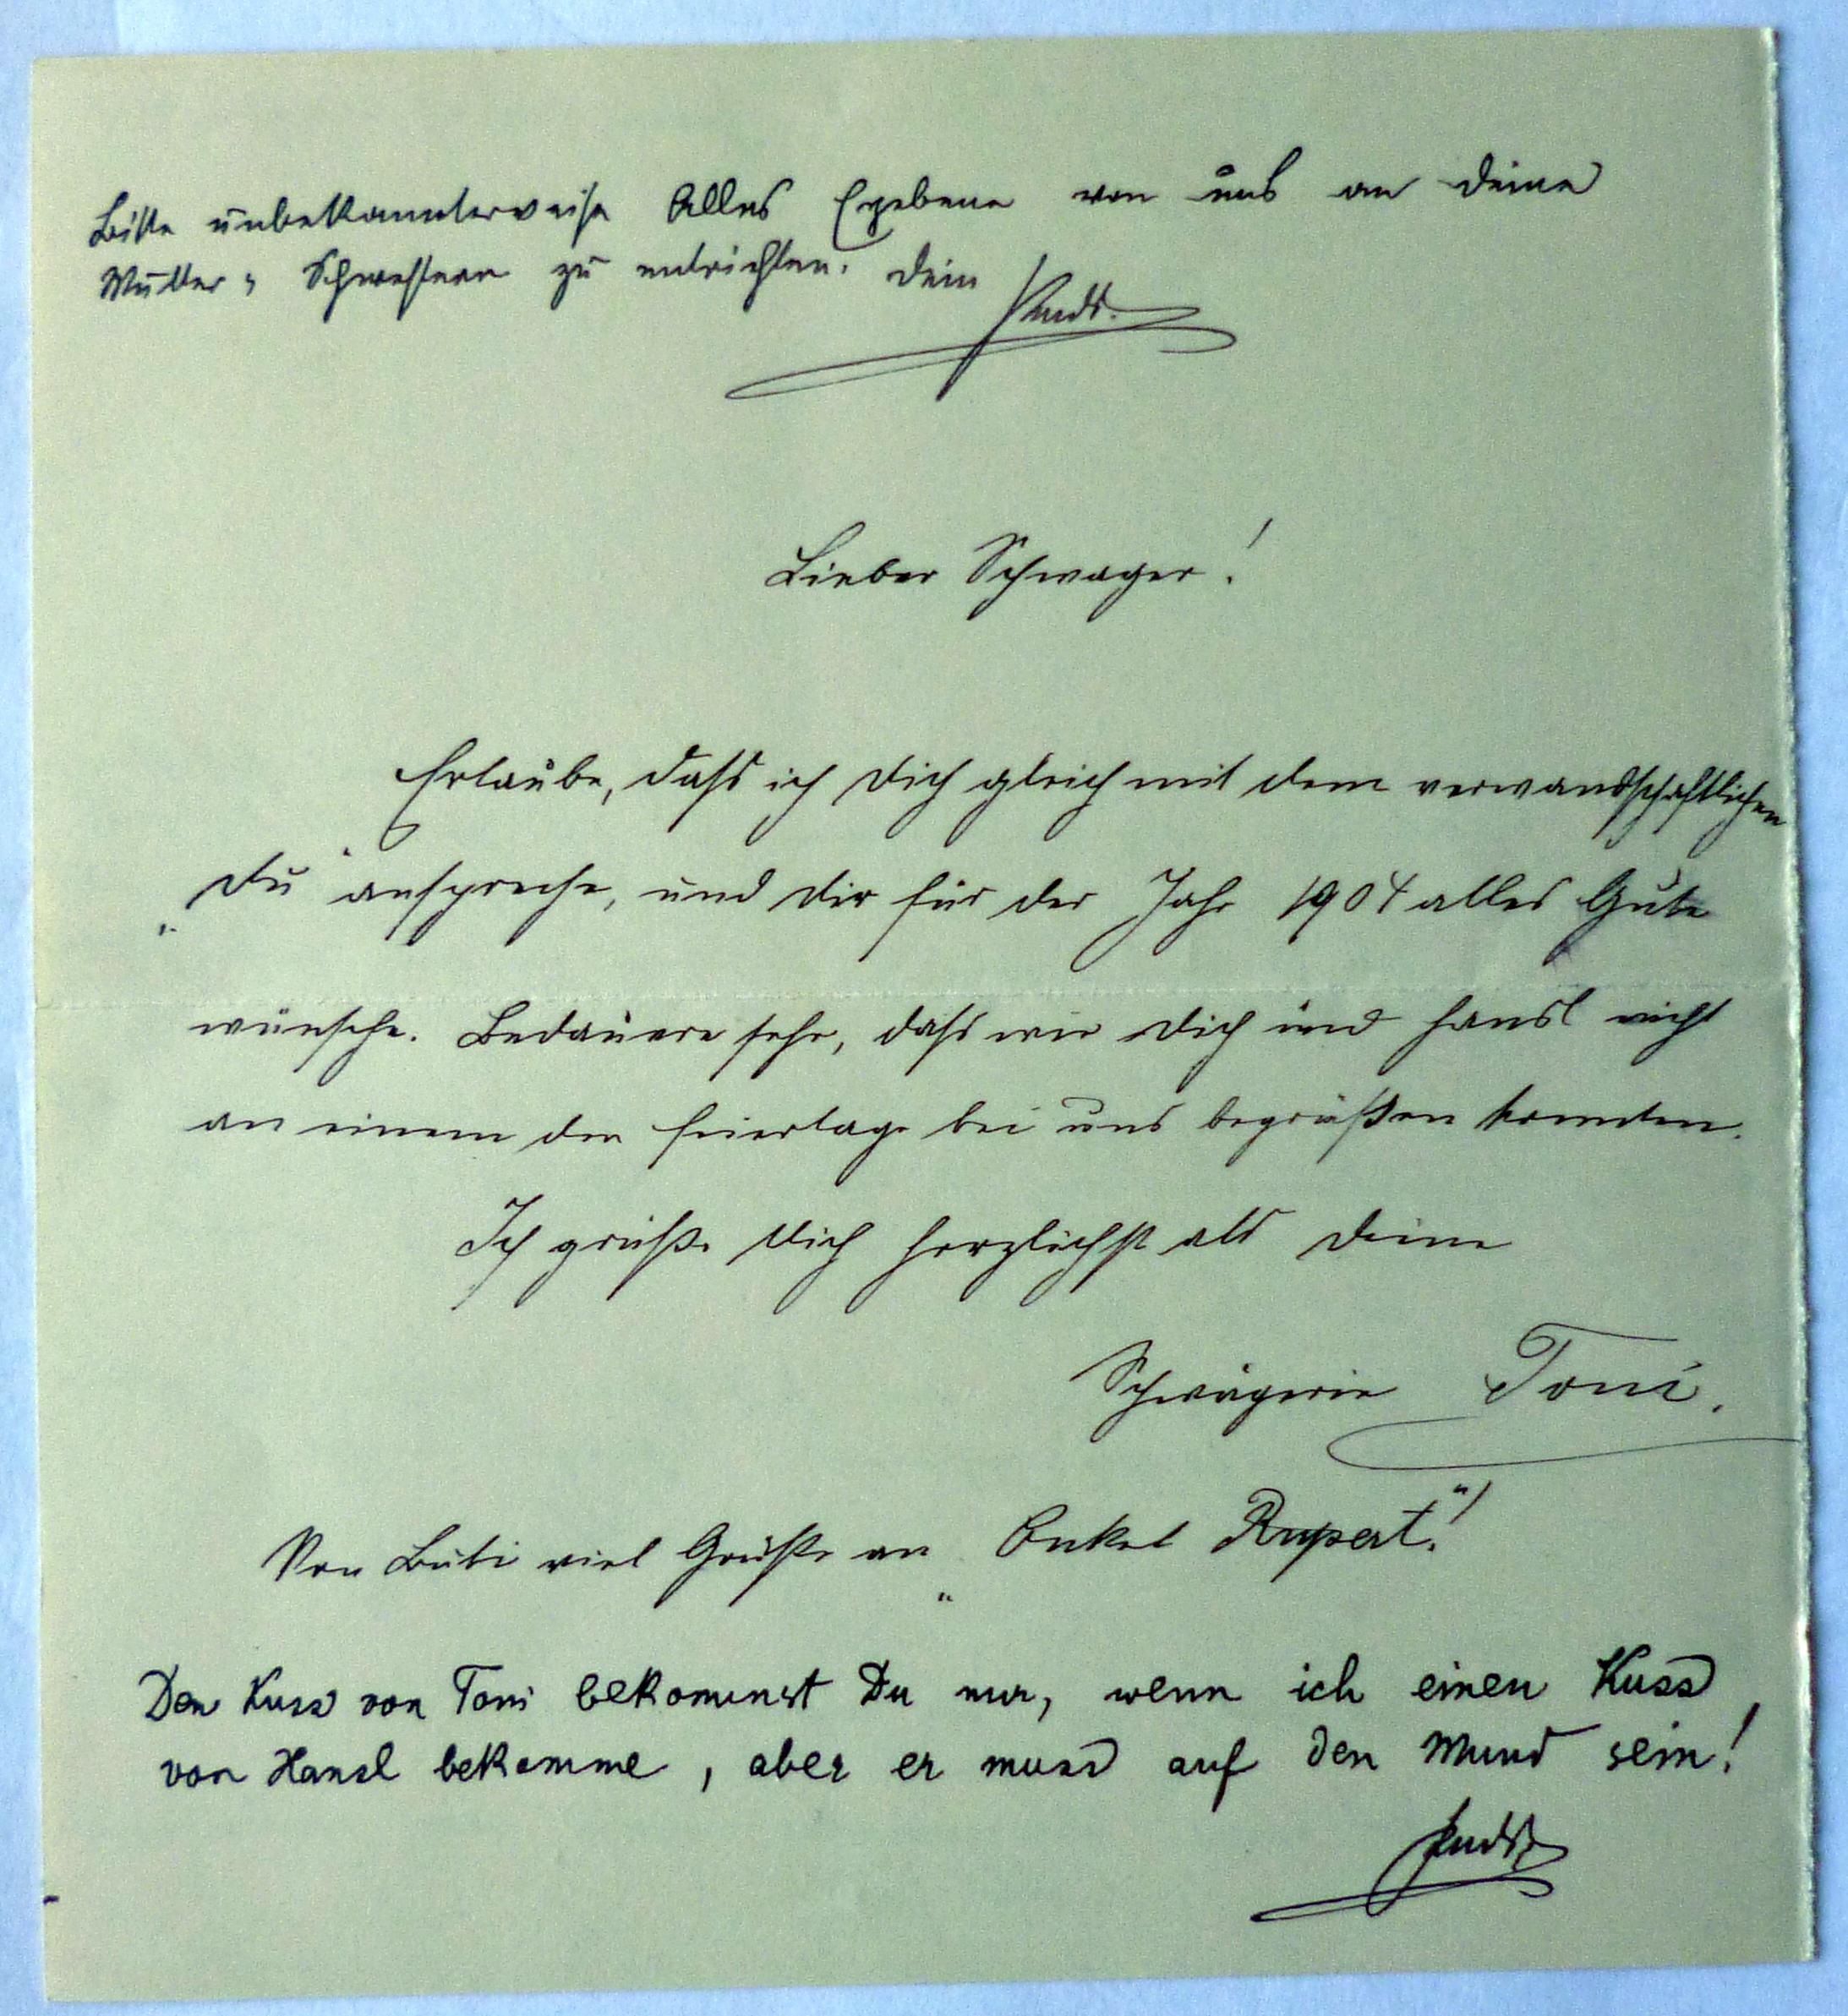 Bitte unbekannterweise Alles Ergebene von uns an Deine
Mutter u Schwestern zu entrichten. Dein
Lieber Schwager!
Erlaube, dass ich Dich gleich mit dem verwandschaftlichen
„Du“ anspreche, und Dir für der Jahr 1904 alles Gute
wünsche. Bedauere sehr, dass wir Dich und Hansl nicht
an einem der Feiertage bei uns begrüßen konnten.
Ich grüße Dich herzlichst als Deine
Schwägerin Toni.
Von Bubi viel Grüße an „Onkel Rupert“!
Den Kuss von Toni bekommst Du nur, wenn ich einen Kuss
von Hansl bekomme, aber er muss auf den Mund sein!